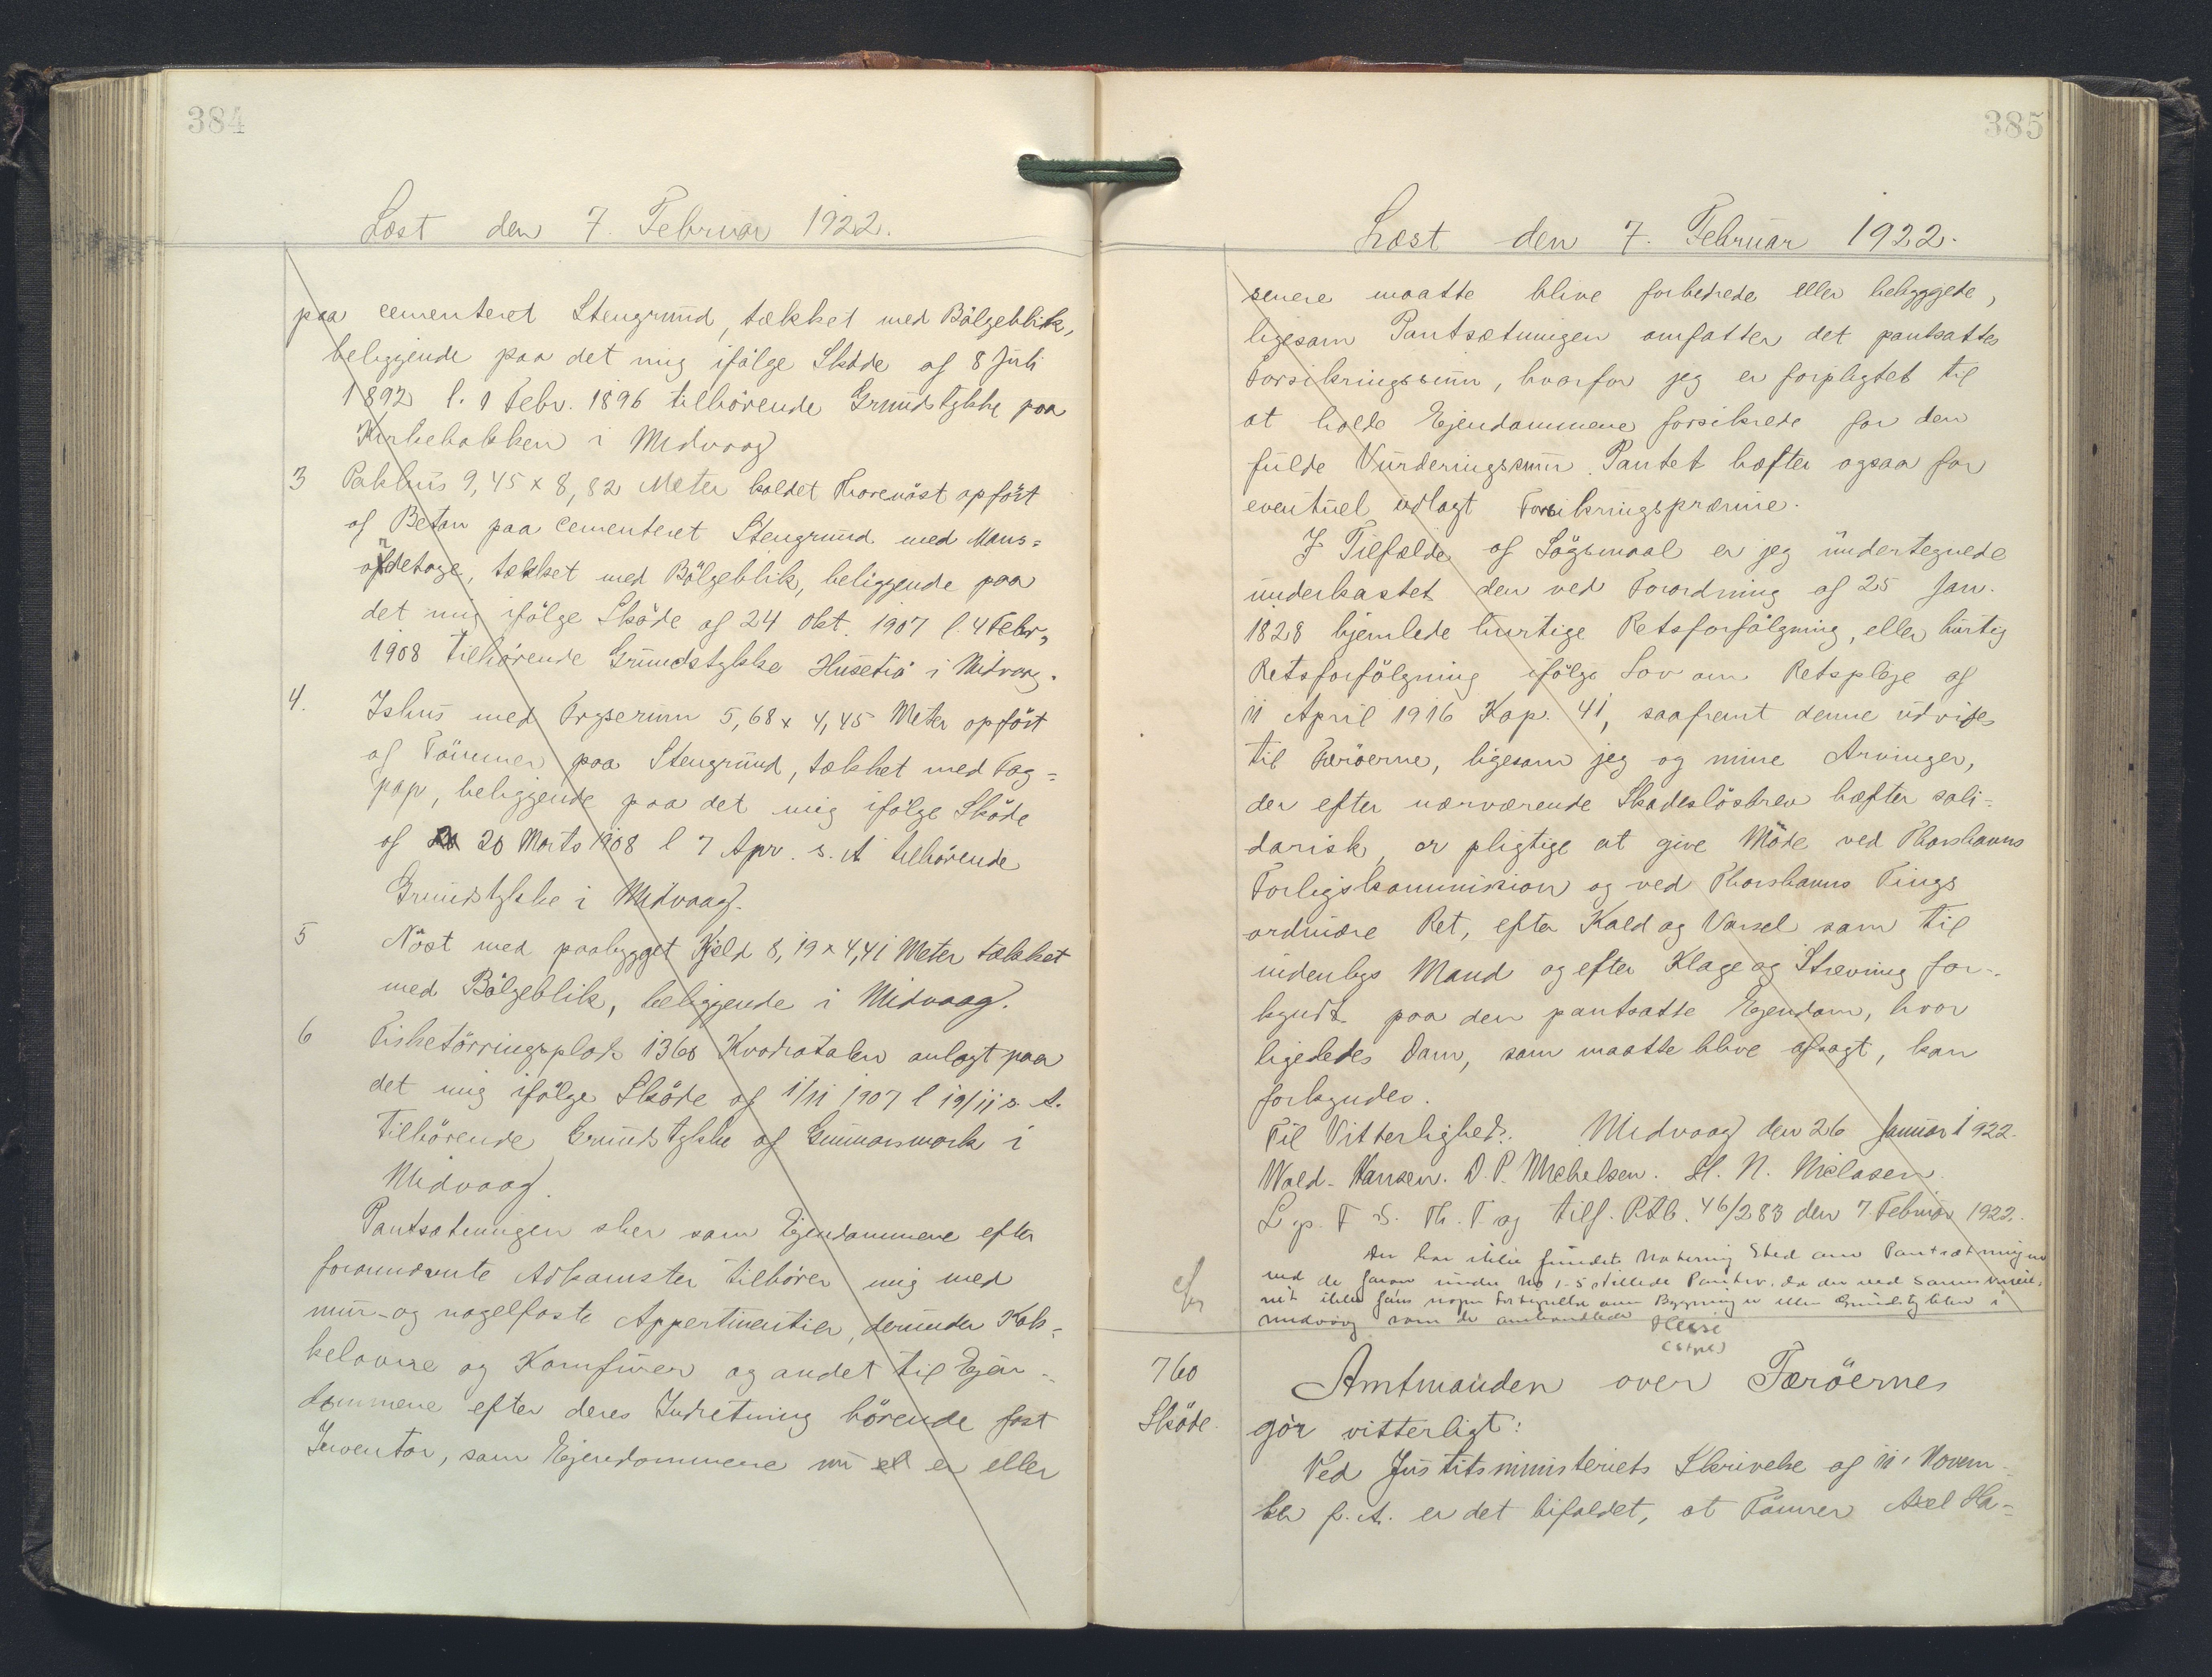 384
Læst den 7. Februar 1922.
paa cementeret Stengrund, tækket med Bölgeblik,
beliggende paa det mig ifölge Sköde af 8 Juli
1892 l. 1 Febr. 1896 tilhörende Grundstykke paa
Kirkebakken i Midvaag
3 Pakhus 9,45 x 8,82 Meter kaldet Thorenöst opfört
af Beton paa cementeret Stengrund med Mans=
ardetage, tækket med Bölgeblik, beliggende paa
det mig ifölge Sköde af 24 Okt. 1907 l. 4 Febr.
1908 tilhörende Grundstykke Husetiä i Midvaag.
4. Ishus med Fryserum 5,68 x 4,45 Meter opfört
af Tömmer paa Stengrund, tækket med Tag=
pap, beliggende paa det mig ifölge Sköde
af 20 Marts 1908 l 7 Apr. s. A tilhörende
Grundstykke i Midvaag.
5 Nöst med paabygget Kjeld 8,19 x 4,41 Meter tækket
med Bölgeblik, beliggende i Midvaag.
6 Fisketörringsplads 1360 Kvadratalen anlagt paa
det mig ifölge Sköde af 1/11 1907 l 19/11 s. A.
tilhörende Grundstykke af Gunnarsmark i
Midvaag.
Pantsætningen sker som Ejendommene efter
forannævnte Adkomster tilhörer mig med
mur- og nagelfaste Appertinentier, derunder Kak=
kelovne og Komfurer og andet til Ejen=
dommene efter deres Indretning hörende fast
Inventar, som Ejendommene nu er eller
385
Læst den 7. Februar 1922.
senere maatte blive forbedrede eller bebyggede,
ligesom Pantsætningen omfatter det pantsatte
Forsikringssum, hvorfor jeg er forpligtet til
at holde Ejendommene forsikrede for den
fulde Vurderingssum. Pantet hæfter ogsaa for
eventuel udlagt Forsikringspræmie.
I Tilfælde af Sögsmaal er jeg undertegnede
underkastet den ved Forordning af 25 Jan.
1828 hjemlede hurtige Retsforfölgning, eller hurtig
Retsforfölgning ifölge Lov om Retspleje af
11 April 1916 Kap. 41, saafremt denne udvides
til Færöerne, ligesom jeg og mine Arvinger,
der efter nærværende Skadeslösbrev hæfter soli=
darisk, er pligtige at give Möde ved Thorshavns
Forligskommission og ved Thorshavns Tings
ordinære Ret, efter Kald og Varsel som til
indenbys Mand og efter Klage og Stævning for-
kyndt paa den pantsatte Ejendom, hvor
ligeledes Dom, som maatte blive afsagt, kan
forkyndes.
Til Vitterlighed. Midvaag den 26 Januar 1922.
Wald. Hansen. D. P. Michelsen. H. N. Niclasen.
L. p. F. S. Th. T. og tilf. P.Tb. 46/283 den 7. Februar 1922.
Der har ikke fundet Notering Sted om Pantsætningen
ved de foran under No 1-5 stillede Panter, da der ved
ikke fans nogen om Bygninger eller Grundstykker i
Midvaag som de omhandlede
760
Sköde.
Amtmanden over Færöerne
gör vitterligt:
Ved Justitsministeriets Skrivelse af 11' Novem-
ber f. A. er det bifaldet, at Tömrer Axel Ha=